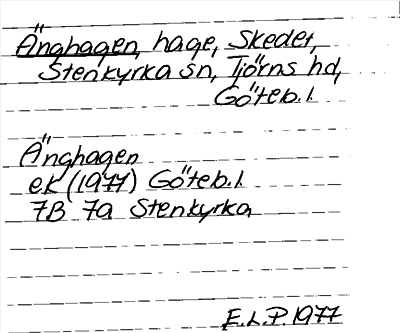 Änghagen, hage, Skedet,
Stenkyrka sn, Tjörns hd,
Göteb. l.
Änghagen
ek (1977) Göteb. l.
7B 7a Stenkyrka
E.L.P. 1977